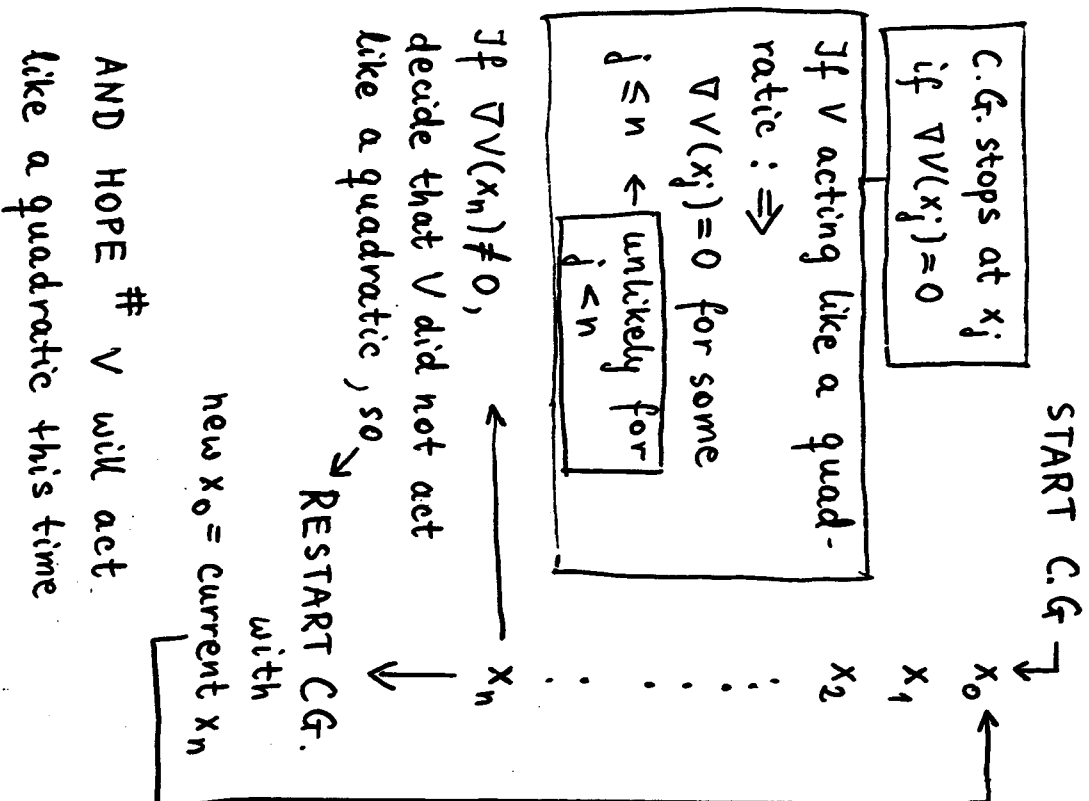 START C.G
C.G. stops at xⱼ
if ∇V(xⱼ)=0
If V acting like a quad-
ratic : ⇒
∇V(xⱼ)=0 for some
j ≤ n ← unlikely for
j < n
x₀
x₁
x₂
. . . . . . . .
xₙ
If ∇V(xₙ)≠0,
decide that V did not act
like a quadratic, so
RESTART C.G.
with
new x₀ = current xₙ
AND HOPE # V will act
like a quadratic this time